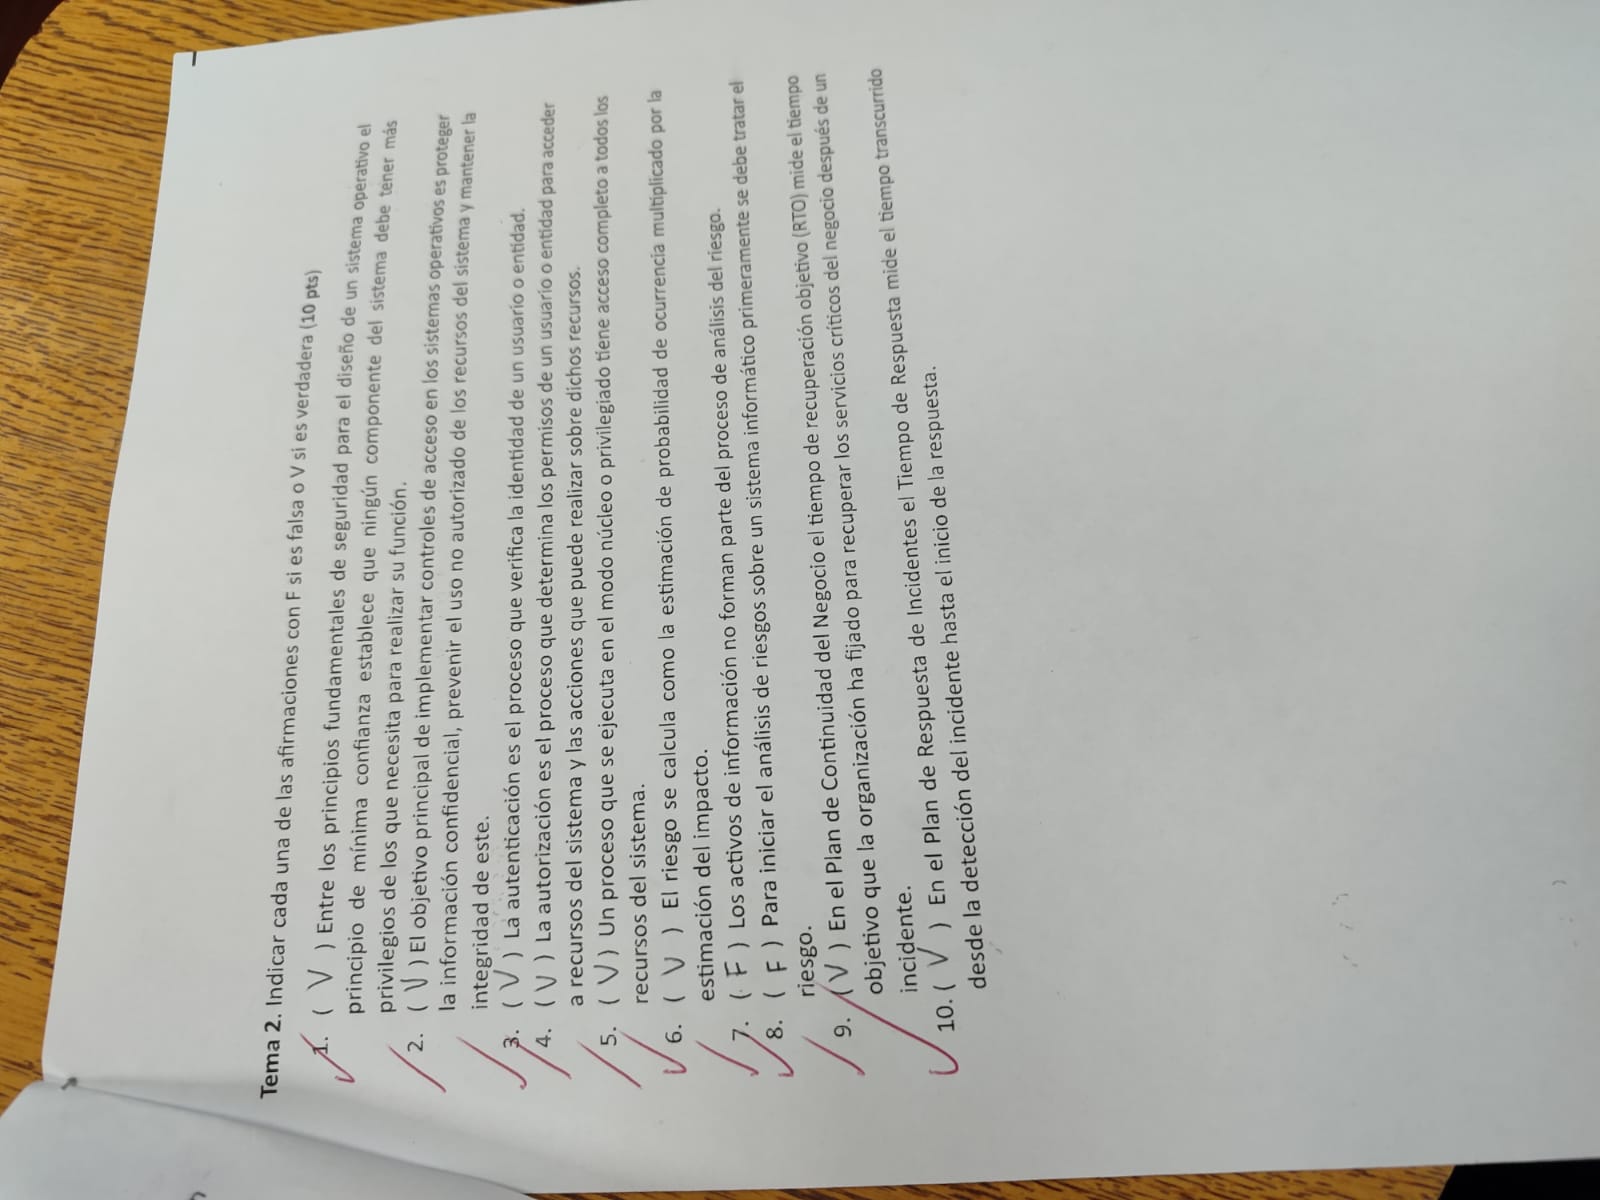 Tema 2. Indicar cada una de las afirmaciones con F si es falsa o V si es verdadera (10 pts)
1. ( V ) Entre los principios fundamentales de seguridad para el diseño de un sistema operativo el
principio de mínima confianza establece que ningún componente del sistema debe tener más
privilegios de los que necesita para realizar su función.
2. ( V ) El objetivo principal de implementar controles de acceso en los sistemas operativos es proteger
la información confidencial, prevenir el uso no autorizado de los recursos del sistema y mantener la
integridad de este.
3. ( V ) La autenticación es el proceso que verifica la identidad de un usuario o entidad.
4. ( V ) La autorización es el proceso que determina los permisos de un usuario o entidad para acceder
a recursos del sistema y las acciones que puede realizar sobre dichos recursos.
5. ( V ) Un proceso que se ejecuta en el modo núcleo o privilegiado tiene acceso completo a todos los
recursos del sistema.
6. ( V ) El riesgo se calcula como la estimación de probabilidad de ocurrencia multiplicado por la
estimación del impacto.
7. ( F ) Los activos de información no forman parte del proceso de análisis del riesgo.
8. ( F ) Para iniciar el análisis de riesgos sobre un sistema informático primeramente se debe tratar el
riesgo.
9. ( V ) En el Plan de Continuidad del Negocio el tiempo de recuperación objetivo (RTO) mide el tiempo
objetivo que la organización ha fijado para recuperar los servicios críticos del negocio después de un
incidente.
10. ( V ) En el Plan de Respuesta de Incidentes el Tiempo de Respuesta mide el tiempo transcurrido
desde la detección del incidente hasta el inicio de la respuesta.